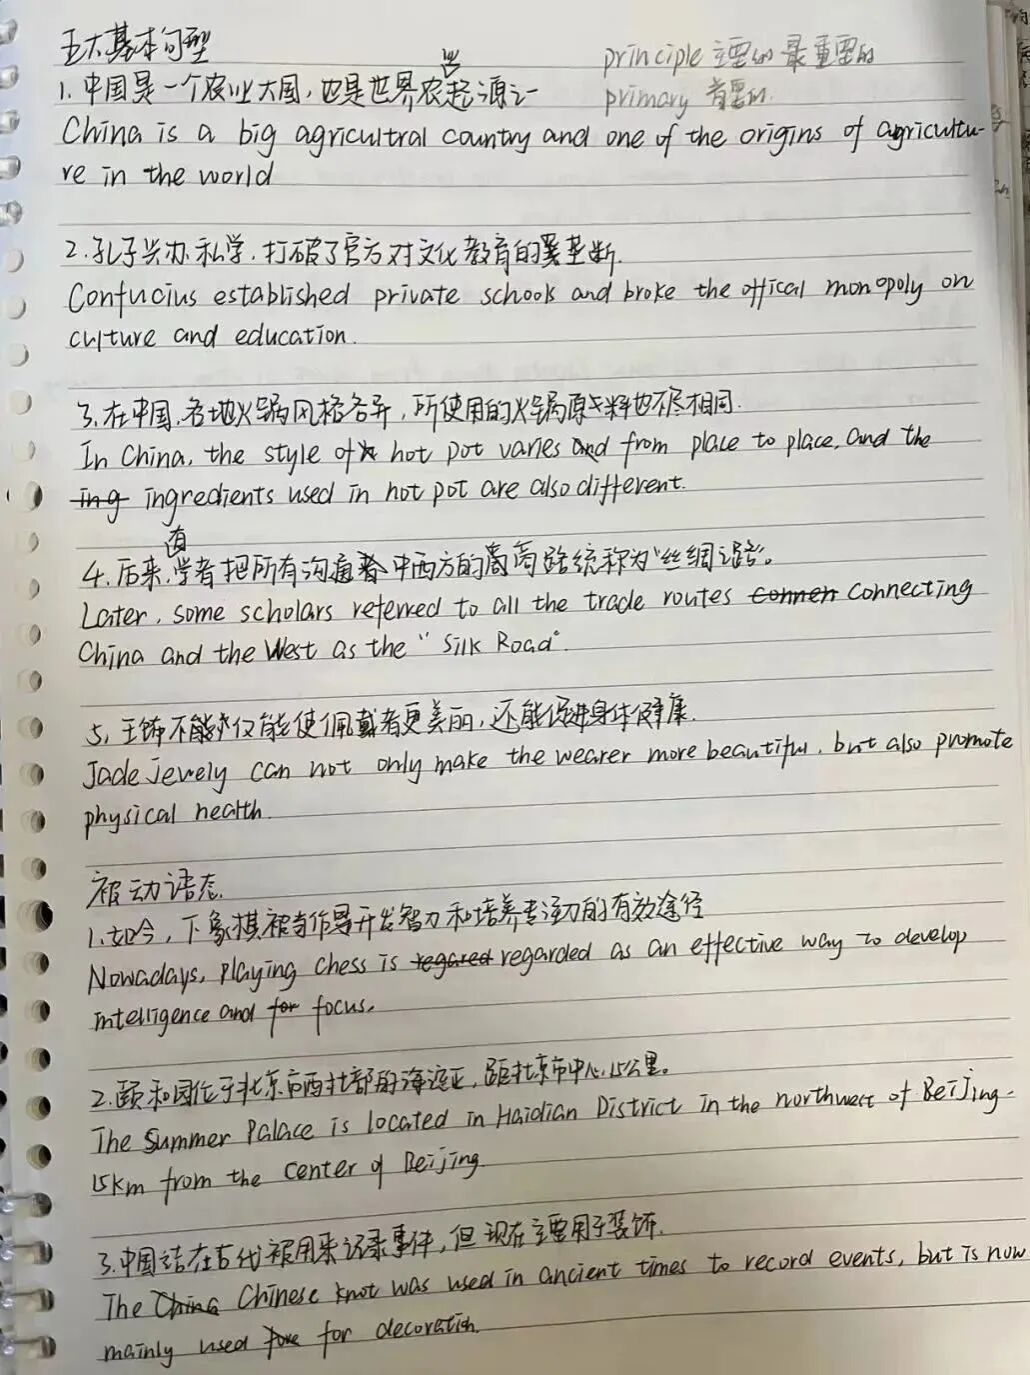 五大基本句型
principle 主要的 最重要的
primary 首要的.
1. 中国是一个农业大国, 也是世界农业起源之一
China is a big agricultral country and one of the origins of agricultu-
re in the world
2. 孔子兴办私学, 打破了官方对文化教育的垄断.
Confucius established private schools and broke the offical monopoly on
culture and education.
3. 在中国, 各地火锅风格各异, 所使用的火锅原料也不尽相同.
In China, the style of hot pot varies from place to place, and the
ing ingredients used in hot pot are also different.
4. 后来, 有学者把所有沟通中西方的商路统称为“丝绸之路”。
Later, some scholars referred to all the trade routes connen connecting
China and the West as the "Silk Road".
5, 玉饰不仅能使佩戴者更美丽, 还能促进身体健康.
Jade jewely can not only make the wearer more beautiful, but also promote
physical health.
被动语态.
1. 如今, 下象棋被当作是开发智力和培养专注力的有效途径
Nowadays, playing chess is regared regarded as an effective way to develop
intelligence and for focus.
2. 颐和园位于北京市西北部的海淀区, 距北京市中心15公里。
The Summer Palace is located in Haidian District in the northwest of Beijing.
15km from the center of Beijing.
3. 中国结在古代被用来记录事件, 但现在主要用于装饰.
The China Chinese knot was used in ancient times to record events, but is now
mainly used for decoration.